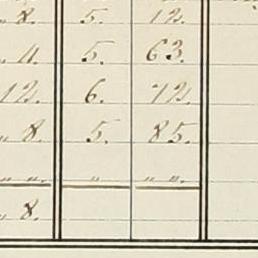 „ 8. 5. 12.
„ 4. 5. 63.
12. 6. 72.
„ 8. 5. 85.
„ „. „ „ „.
„ 8.